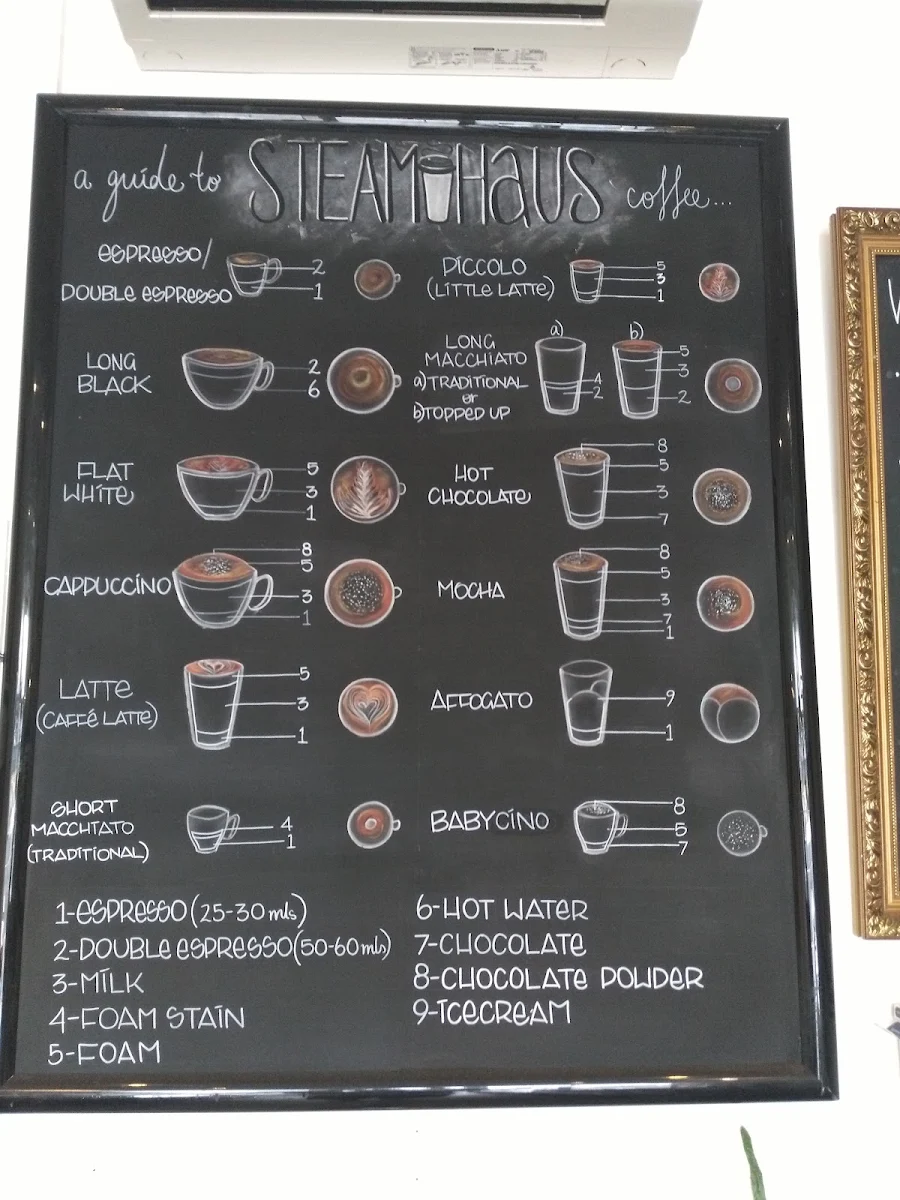 a guide to STEAM HAUS coffee...
ESPRESSO/
DOUBLE ESPRESSO
2
1
LONG
BLACK
2
6
FLAT
WHITE
5
3
1
CAPPUCCINO
8
5
3
1
LATTE
(CAFFÉ LATTE)
5
3
1
SHORT
MACCHIATO
(TRADITIONAL)
4
1
PICCOLO
(LITTLE LATTE)
5
3
1
LONG
MACCHIATO
a) TRADITIONAL
or
b) TOPPED UP
a)
4
2
b)
5
3
2
HOT
CHOCOLATE
8
5
3
7
MOCHA
8
5
3
7
1
AFFOGATO
9
1
BABYCINO
8
5
7
1-ESPRESSO (25-30 mls)
2-DOUBLE ESPRESSO (50-60 mls)
3-MILK
4-FOAM STAIN
5-FOAM
6-HOT WATER
7-CHOCOLATE
8-CHOCOLATE POWDER
9-ICECREAM